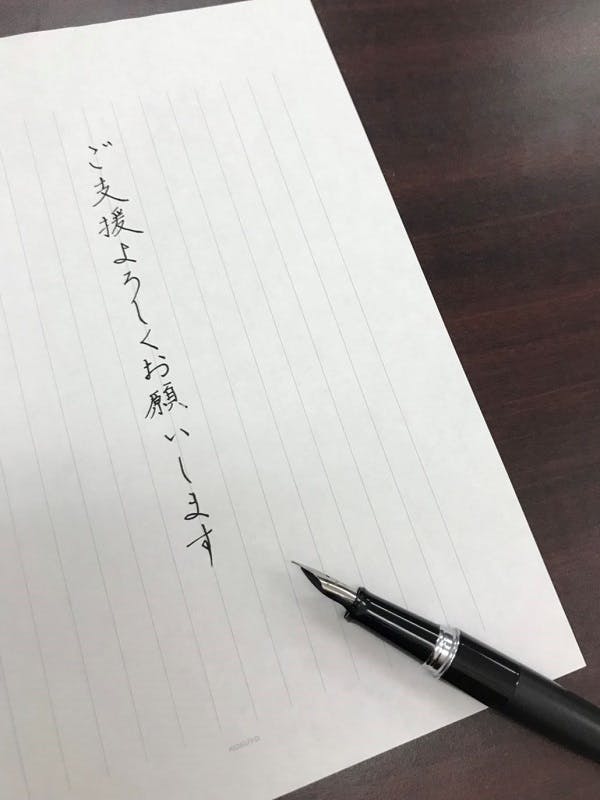 ご支援よろしくお願いします
KOKUYO